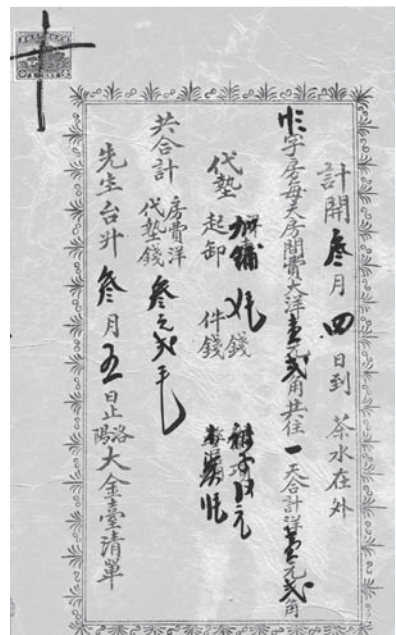 計開叁月四日到 茶水在外
字房每天房間費大洋壹元貳角共住一天合計洋壹元貳角
代墊 加鋪 錢
起卸 件錢
共合計 房費洋 代墊錢 叁元貳毛
先生台升 叁月五日止 洛陽大金臺清單